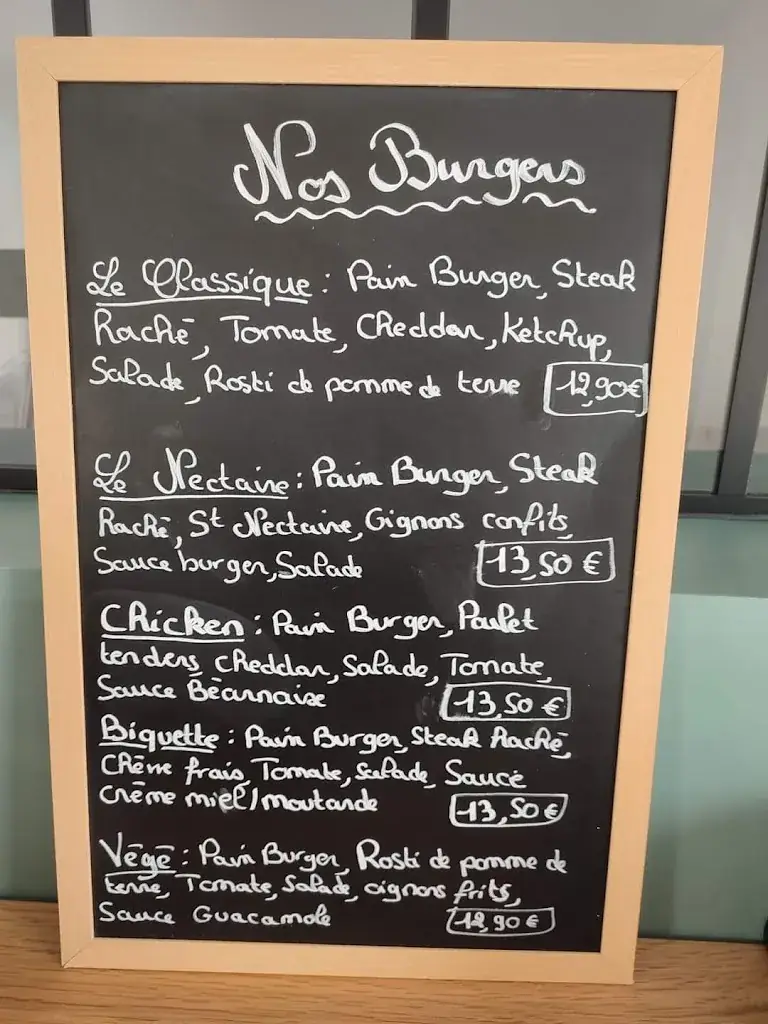 Nos Burgers
Le Classique : Pain Burger, Steak
haché, Tomate, Cheddar, Ketchup,
Salade, Rosti de pomme de terre 12,90€
Le Nectaire : Pain Burger, Steak
haché, St Nectaire, Oignons confits,
Sauce burger, Salade 13,50 €
Chicken : Pain Burger, Poulet
tenders, cheddar, Salade, Tomate,
Sauce Béarnaise 13,50 €
Biquette : Pain Burger, Steak haché,
Chèvre frais, Tomate, Salade, Sauce
crème miel/moutarde 13,50€
Végé : Pain Burger, Rosti de pomme de
terre, Tomate, Salade, oignons frits,
Sauce Guacamole 12,90€